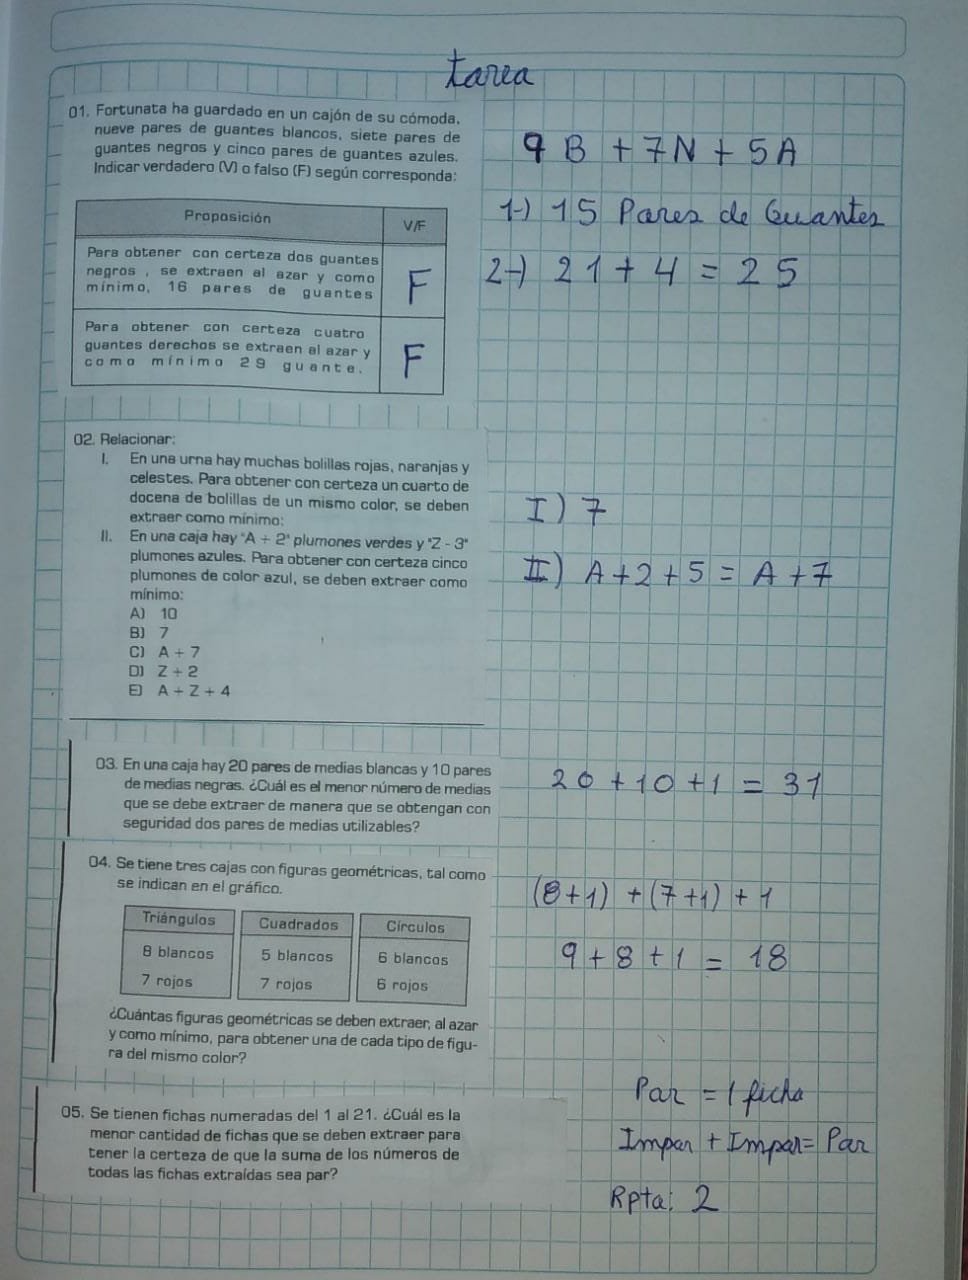 tarea
01. Fortunata ha guardado en un cajón de su cómoda,
nueve pares de guantes blancos, siete pares de
guantes negros y cinco pares de guantes azules.
Indicar verdadero (V) o falso (F) según corresponda:
Proposición V/F
Para obtener con certeza dos guantes
negros , se extraen al azar y como
mínimo, 16 pares de guantes
F
Para obtener con certeza cuatro
guantes derechos se extraen al azar y
como mínimo 29 guante.
F
9B + 7N + 5A
1-) 15 Pares de Guantes
2-) 21 + 4 = 25
02. Relacionar:
I. En una urna hay muchas bolillas rojas, naranjas y
celestes. Para obtener con certeza un cuarto de
docena de bolillas de un mismo color, se deben
extraer como mínimo:
II. En una caja hay "A + 2" plumones verdes y "Z - 3"
plumones azules. Para obtener con certeza cinco
plumones de color azul, se deben extraer como
mínimo:
A) 10
B) 7
C) A + 7
D) Z + 2
E) A + Z + 4
I) 7
II) A + 2 + 5 = A + 7
03. En una caja hay 20 pares de medias blancas y 10 pares
de medias negras. ¿Cuál es el menor número de medias
que se debe extraer de manera que se obtengan con
seguridad dos pares de medias utilizables?
20 + 10 + 1 = 31
04. Se tiene tres cajas con figuras geométricas, tal como
se indican en el gráfico.
Triángulos Cuadrados Círculos
8 blancos 5 blancos 6 blancos
7 rojos 7 rojos 6 rojos
¿Cuántas figuras geométricas se deben extraer, al azar
y como mínimo, para obtener una de cada tipo de figu-
ra del mismo color?
(8+1) + (7+1) + 1
9 + 8 + 1 = 18
05. Se tienen fichas numeradas del 1 al 21. ¿Cuál es la
menor cantidad de fichas que se deben extraer para
tener la certeza de que la suma de los números de
todas las fichas extraídas sea par?
Par = 1 ficha
Impar + Impar = Par
Rpta: 2